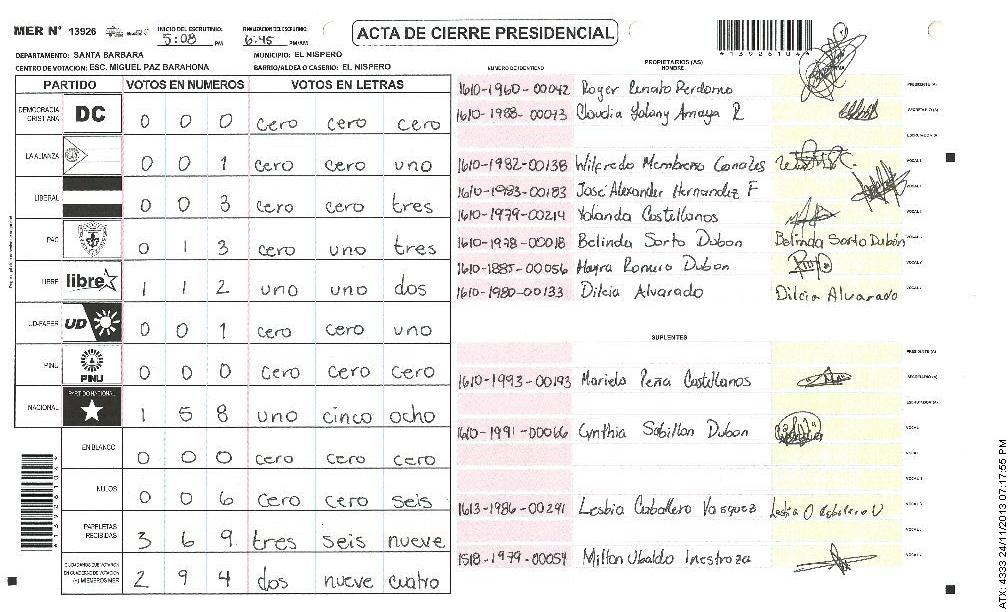 MER Nº 13926 INICIO DEL ESCRUTINIO: 5:08 PM FINALIZACION DEL ESCRUTINIO: 6:45 PM/AM
ACTA DE CIERRE PRESIDENCIAL
DEPARTAMENTO: SANTA BARBARA MUNICIPIO: EL NISPERO
CENTRO DE VOTACION: ESC. MIGUEL PAZ BARAHONA BARRIO/ALDEA O CASERIO: EL NISPERO
PARTIDO VOTOS EN NUMEROS VOTOS EN LETRAS
DEMOCRACIA CRISTIANA DC 0 0 0 cero cero cero
LA ALIANZA 0 0 1 cero cero uno
LIBERAL 0 0 3 cero cero tres
PAC 0 1 3 cero uno tres
LIBRE libre 1 1 2 uno uno dos
UD-FAPER UD 0 0 1 cero cero uno
PINU PINU 0 0 0 cero cero cero
NACIONAL PARTIDO NACIONAL 1 5 8 uno cinco ocho
EN BLANCO 0 0 0 cero cero cero
NULOS 0 0 6 cero cero seis
PAPELETAS RECIBIDAS 3 6 9 tres seis nueve
CIUDADANOS QUE VOTARON EN CUADERNO DE VOTACION (+) MIEMBROS MER 2 9 4 dos nueve cuatro
NUMERO DE IDENTIDAD PROPIETARIOS (AS) NOMBRE
1610-1960-00042 Roger Renato Perdomo PRESIDENTE (A)
1610-1988-00073 Claudia Yolany Amaya R SECRETARIO (A)
ESCRUTADOR (A)
1610-1982-00138 Wilfredo Membreno Canales VOCAL
1610-1983-00183 José Alexander Hernandez F VOCAL
1610-1979-00214 Yolanda Castellanos VOCAL
1610-1978-00018 Belinda Sorto Dubon Belinda Sorto Dubón VOCAL
1610-1885-00056 Mayra Romero Dubon VOCAL
1610-1980-00133 Dilcia Alvarado Dilcia Alvarado VOCAL
SUPLENTES
PRESIDENTE (A)
1610-1993-00193 Mariela Peña Castellanos SECRETARIO (A)
ESCRUTADOR (A)
1610-1991-00066 Cynthia Sabillon Dubon VOCAL
VOCAL
1613-1986-00291 Lesbia Caballero Vasquez VOCAL
VOCAL
1518-1979-00054 Milton Ubaldo Inestroza VOCAL
ATX: 4333 24/11/2013 07:17:55 PM